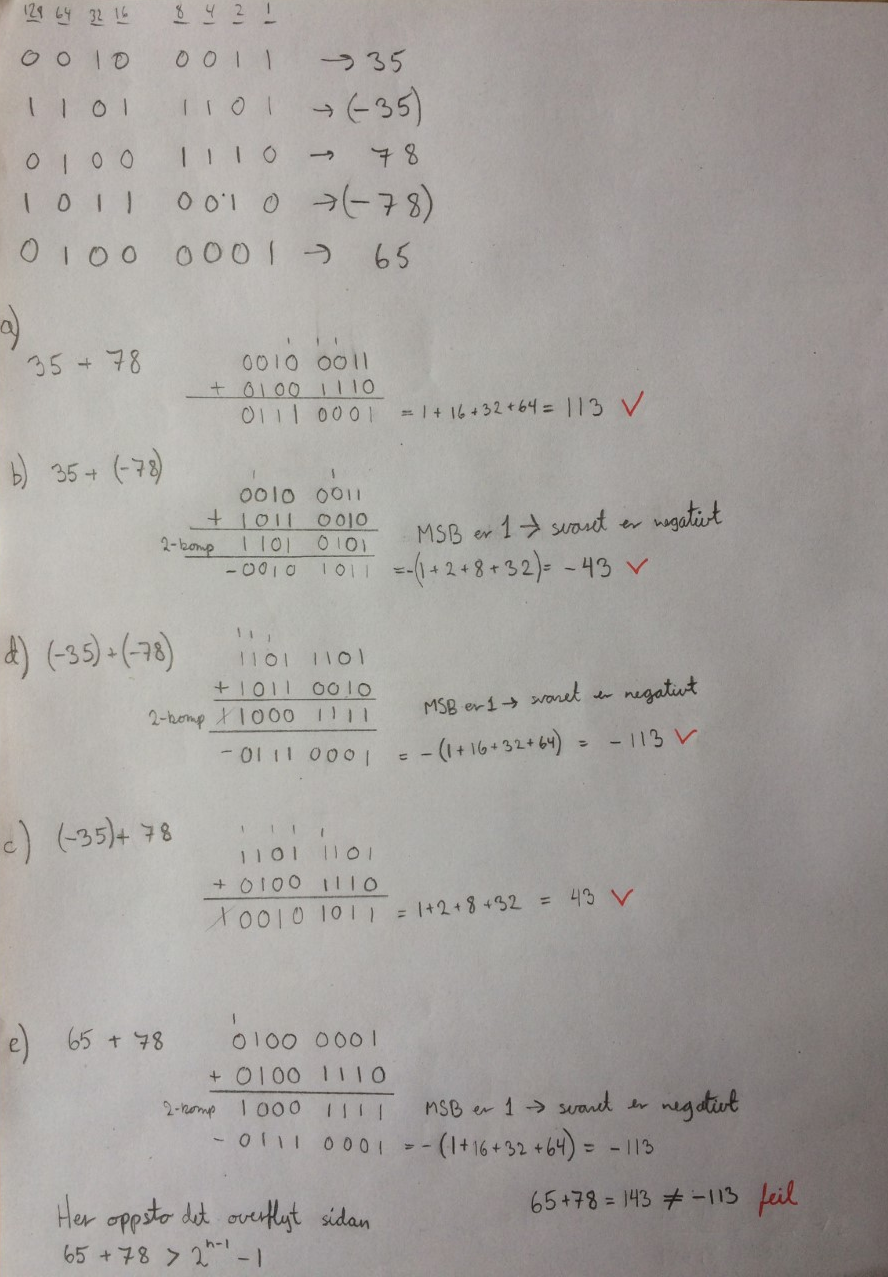 128 64 32 16 8 4 2 1
0 0 1 0 0 0 1 1 → 35
1 1 0 1 1 1 0 1 → (-35)
0 1 0 0 1 1 1 0 → 78
1 0 1 1 0 0 1 0 → (-78)
0 1 0 0 0 0 0 1 → 65
a)
1 1 1
35 + 78 0010 0011
+ 0100 1110
0111 0001 = 1 + 16 + 32 + 64 = 113 ✓
b) 35 + (-78)
1 1
0010 0011
+ 1011 0010 MSB er 1 → svaret er negativt
2-komp 1101 0101
-0010 1011 = -(1 + 2 + 8 + 32) = -43 ✓
1 1 1
d) (-35) + (-78) 1101 1101
+ 1011 0010 MSB er 1 → svaret er negativt
2-komp 1 1000 1111
-0111 0001 = -(1 + 16 + 32 + 64) = -113 ✓
c) (-35) + 78
1 1 1 1
1101 1101
+ 0100 1110
1 0010 1011 = 1 + 2 + 8 + 32 = 43 ✓
1
e) 65 + 78 0100 0001
+ 0100 1110
2-komp 1000 1111 MSB er 1 → svaret er negativt
- 0111 0001 = -(1 + 16 + 32 + 64) = -113
65 + 78 = 143 ≠ -113 feil
Her oppsto det overflyt sidan
65 + 78 > 2^(n-1) - 1